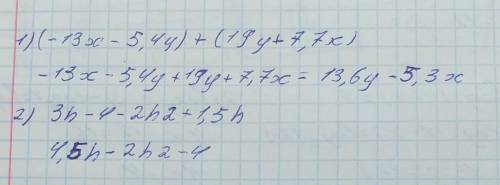 1) (-13x - 5,4y) + (19y + 7,7x)
-13x - 5,4y + 19y + 7,7x = 13,6y - 5,3x
2) 3h - 4 - 2h2 + 1,5h
4,5h - 2h2 - 4